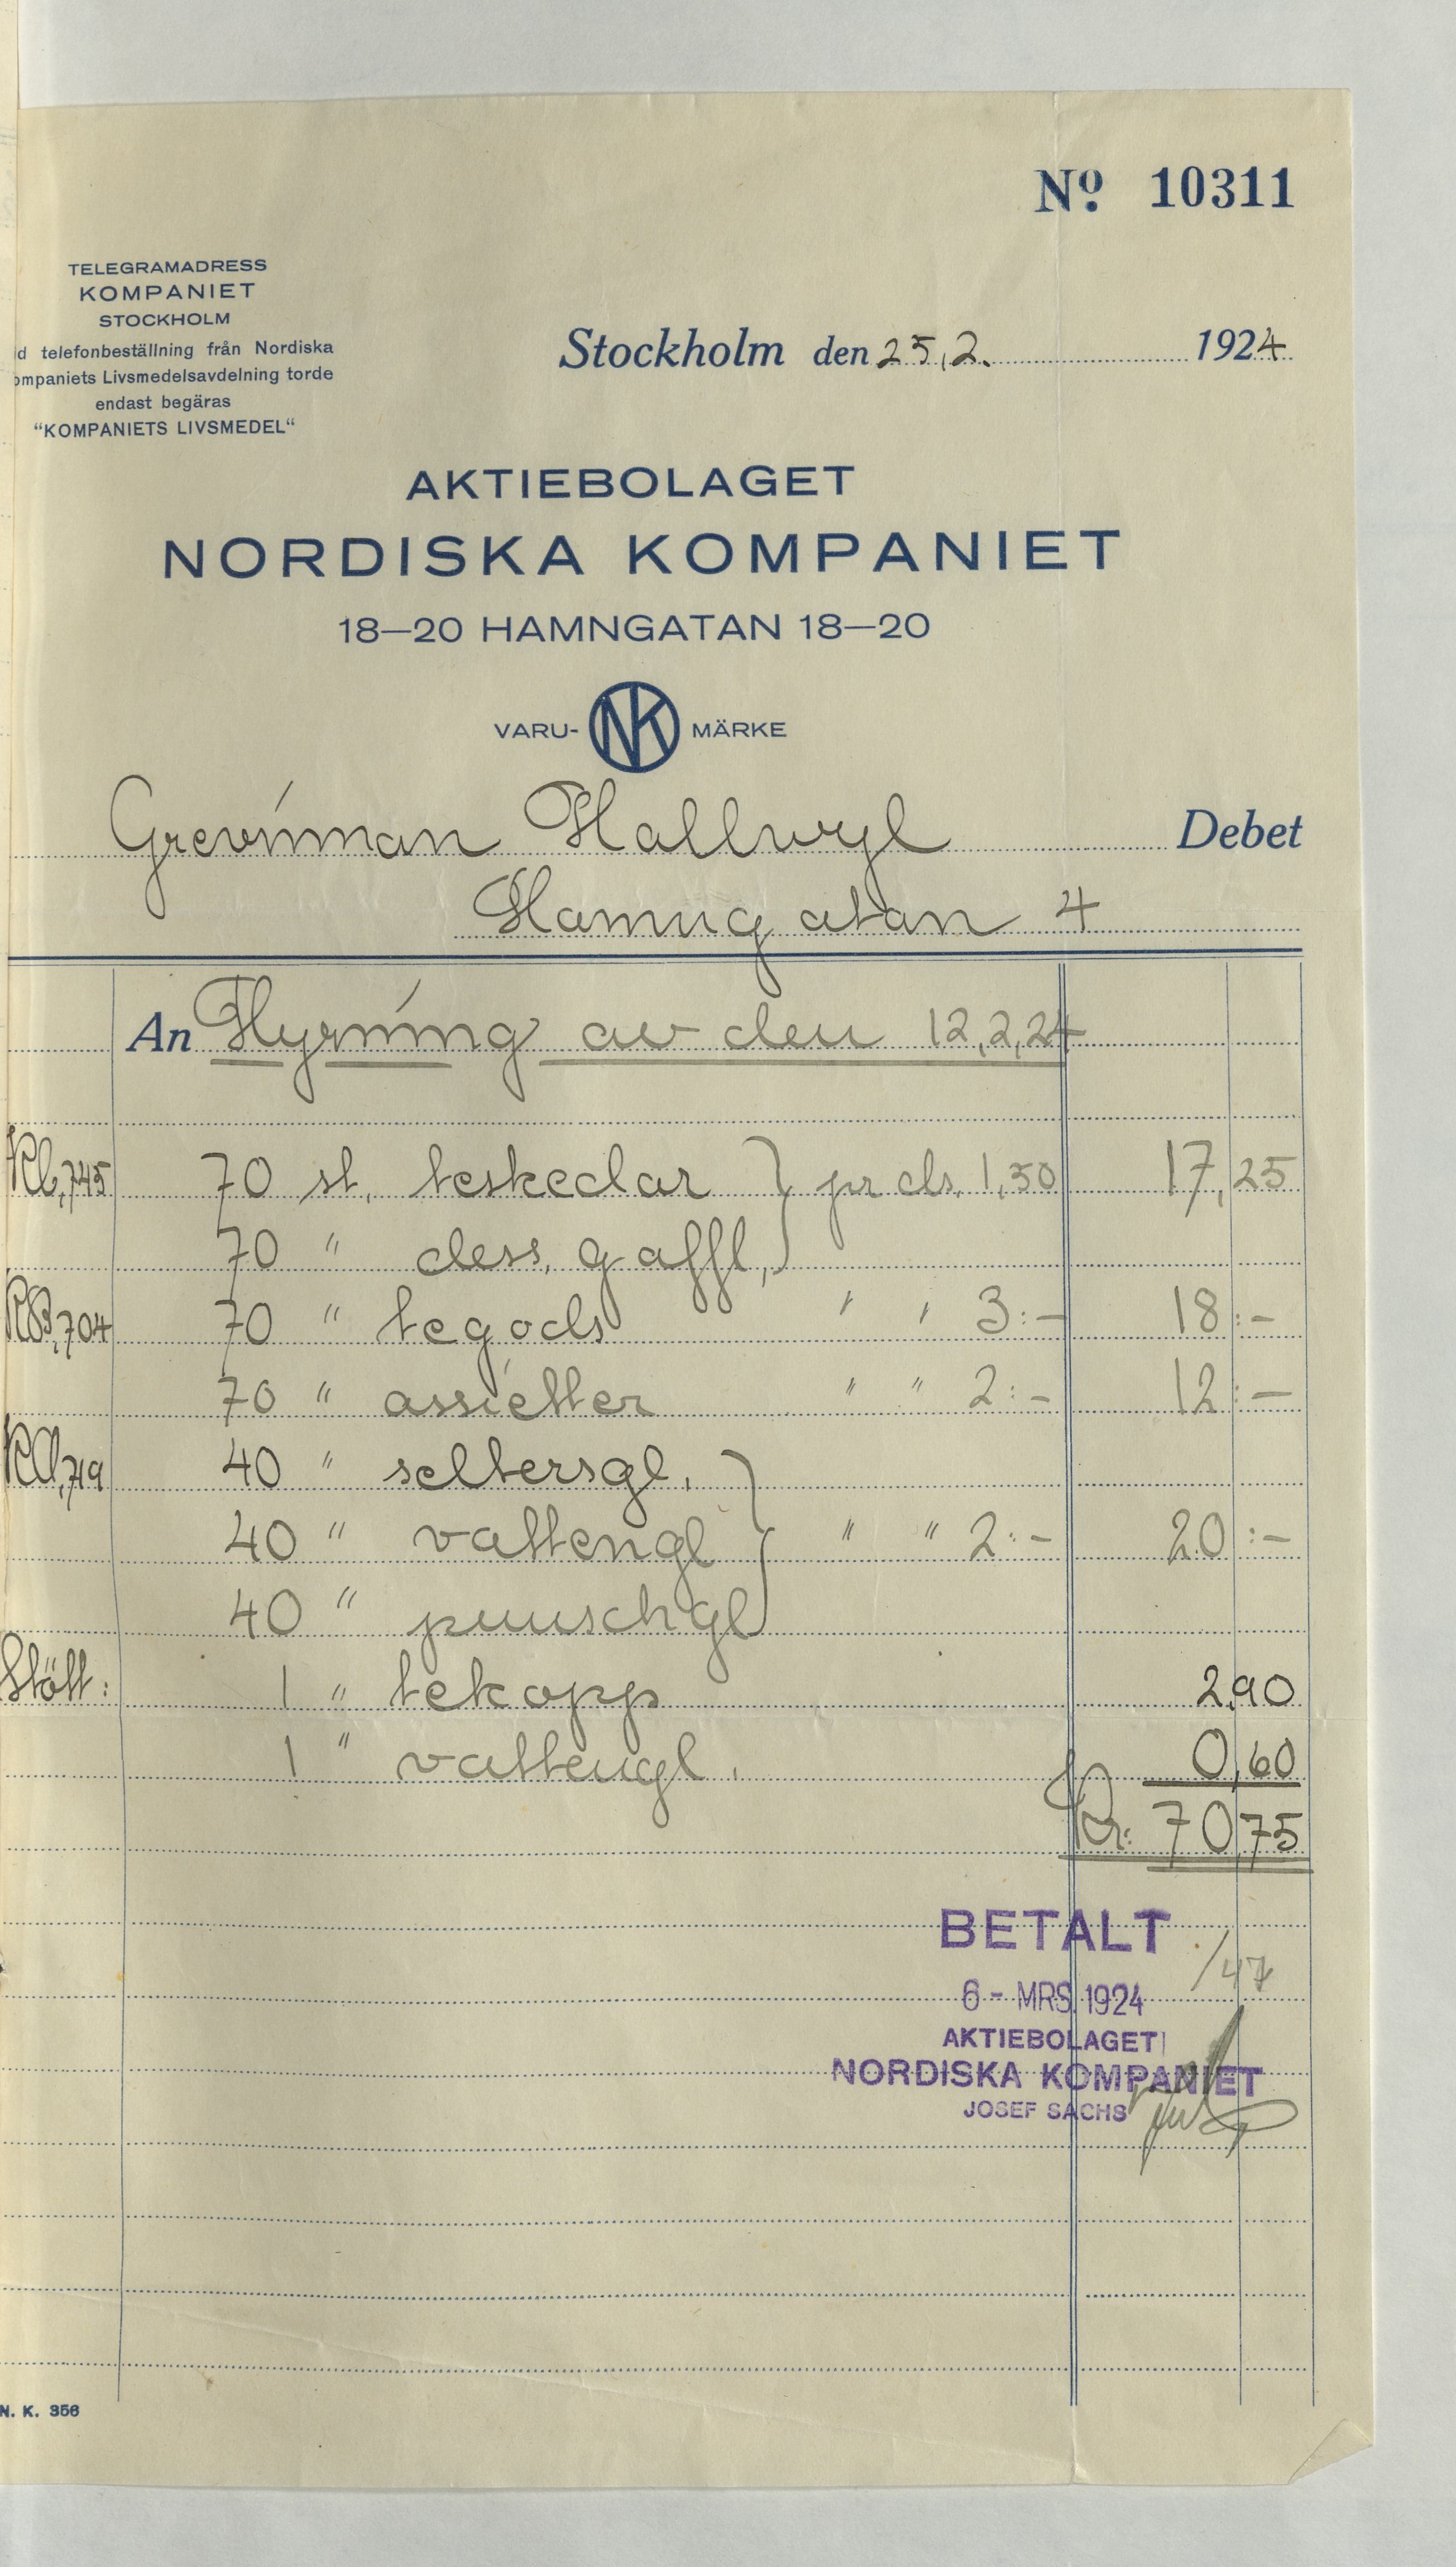 Nº 10311
TELEGRAMADRESS
KOMPANIET
STOCKHOLM
d telefonbeställning från Nordiska
ompaniets Livsmedelsavdelning torde
endast begäras
“KOMPANIETS LIVSMEDEL“
Stockholm den 25,2. 1924
AKTIEBOLAGET
NORDISKA KOMPANIET
18—20 HAMNGATAN 18—20
VARU- NK MÄRKE
Grevinnan Hallwyl Debet
Hamngatan 4
An Hyrning av den 12,2,24
745 70 st. teskedar } pr ds. 1,50 17,25
70 " dess. gaffl,
704 70 " tegods " " 3:- 18:-
70 " assietter " " 2:- 12:-
719 40 " seltersgl.
40 " vattengl } " " 2:- 20:-
40 " punschgl
1 " tekopp 2,90
1 " vattengl. 0,60
Kr. 70,75
BETALT
/47
6 - MRS 1924
AKTIEBOLAGET
NORDISKA KOMPANIET
JOSEF SACHS
N. K. 356